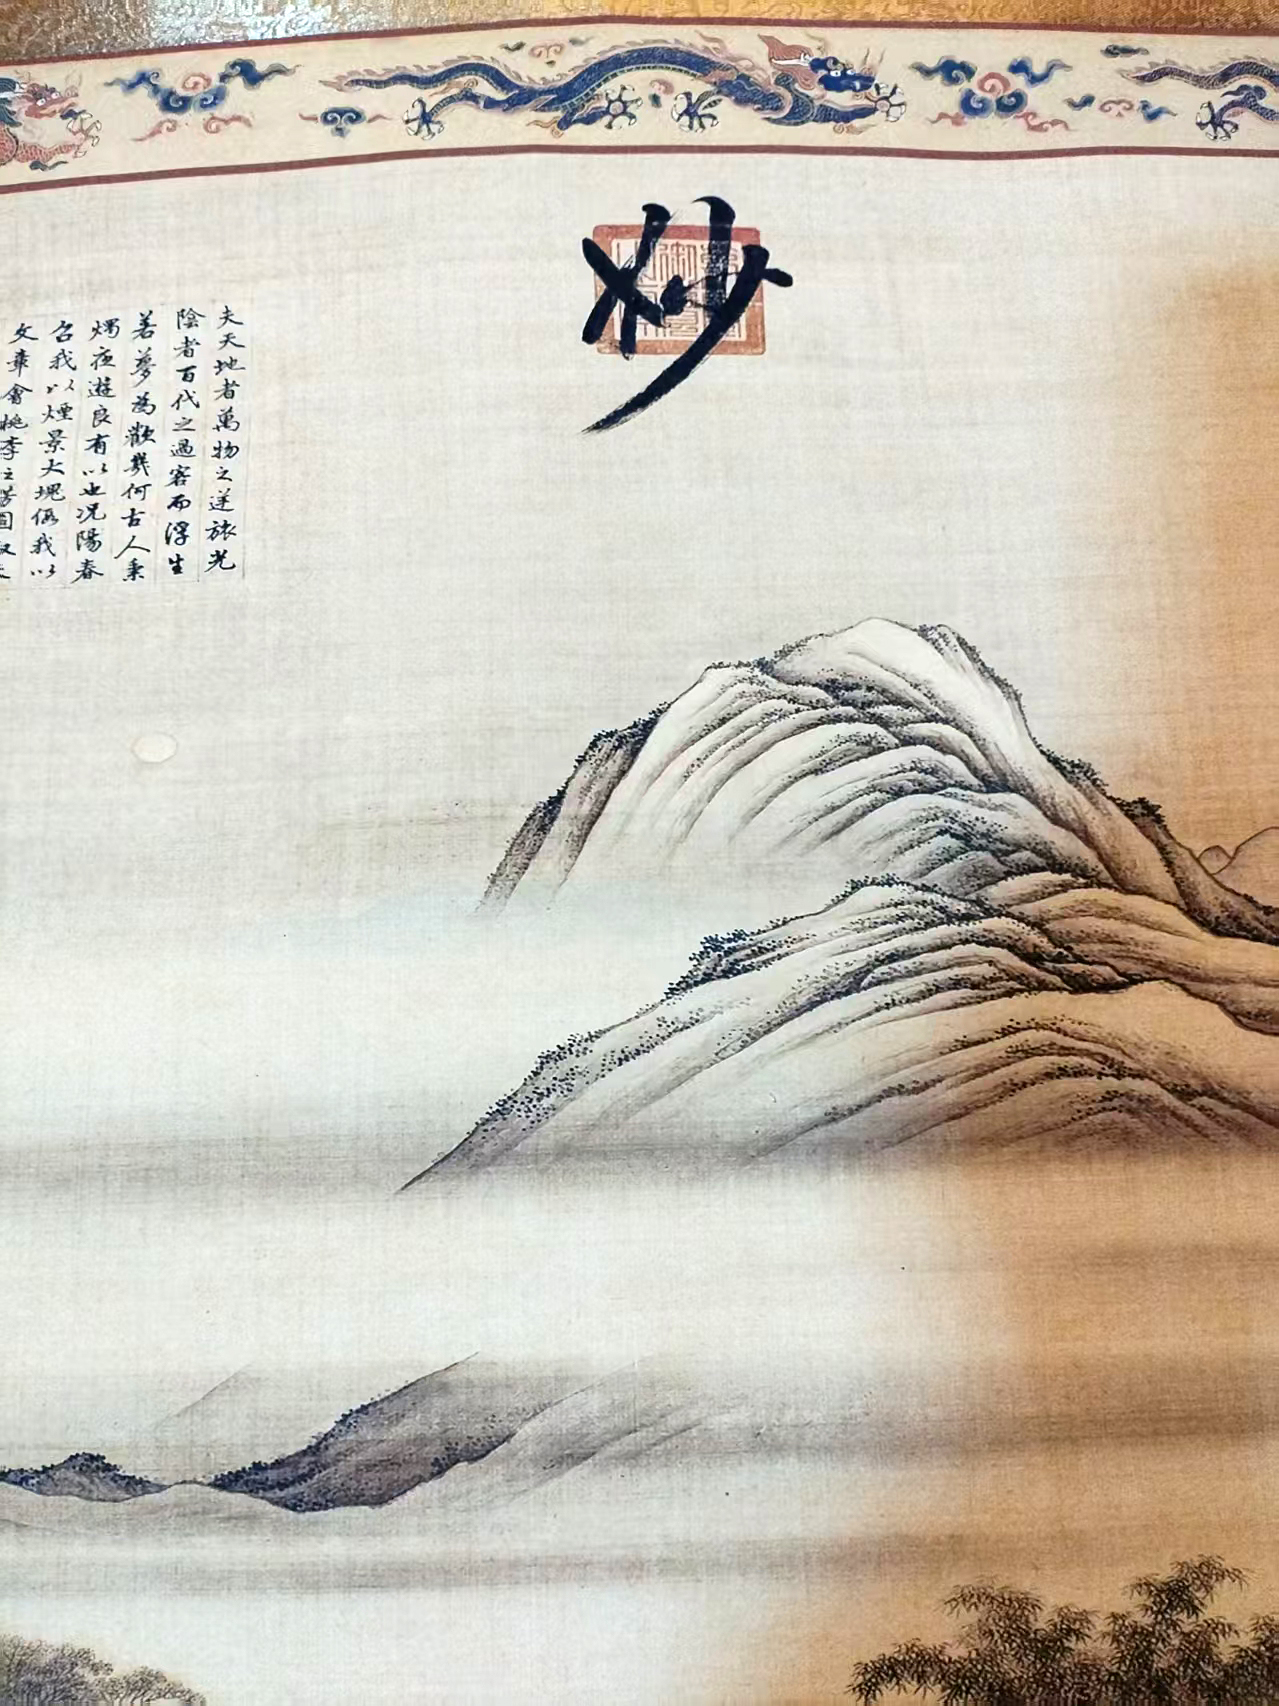 妙
夫天地者萬物之逆旅光
陰者百代之過客而浮生
若夢為歡幾何古人秉
燭夜遊良有以也況陽春
召我以煙景大塊假我以
文章會桃李之芳園